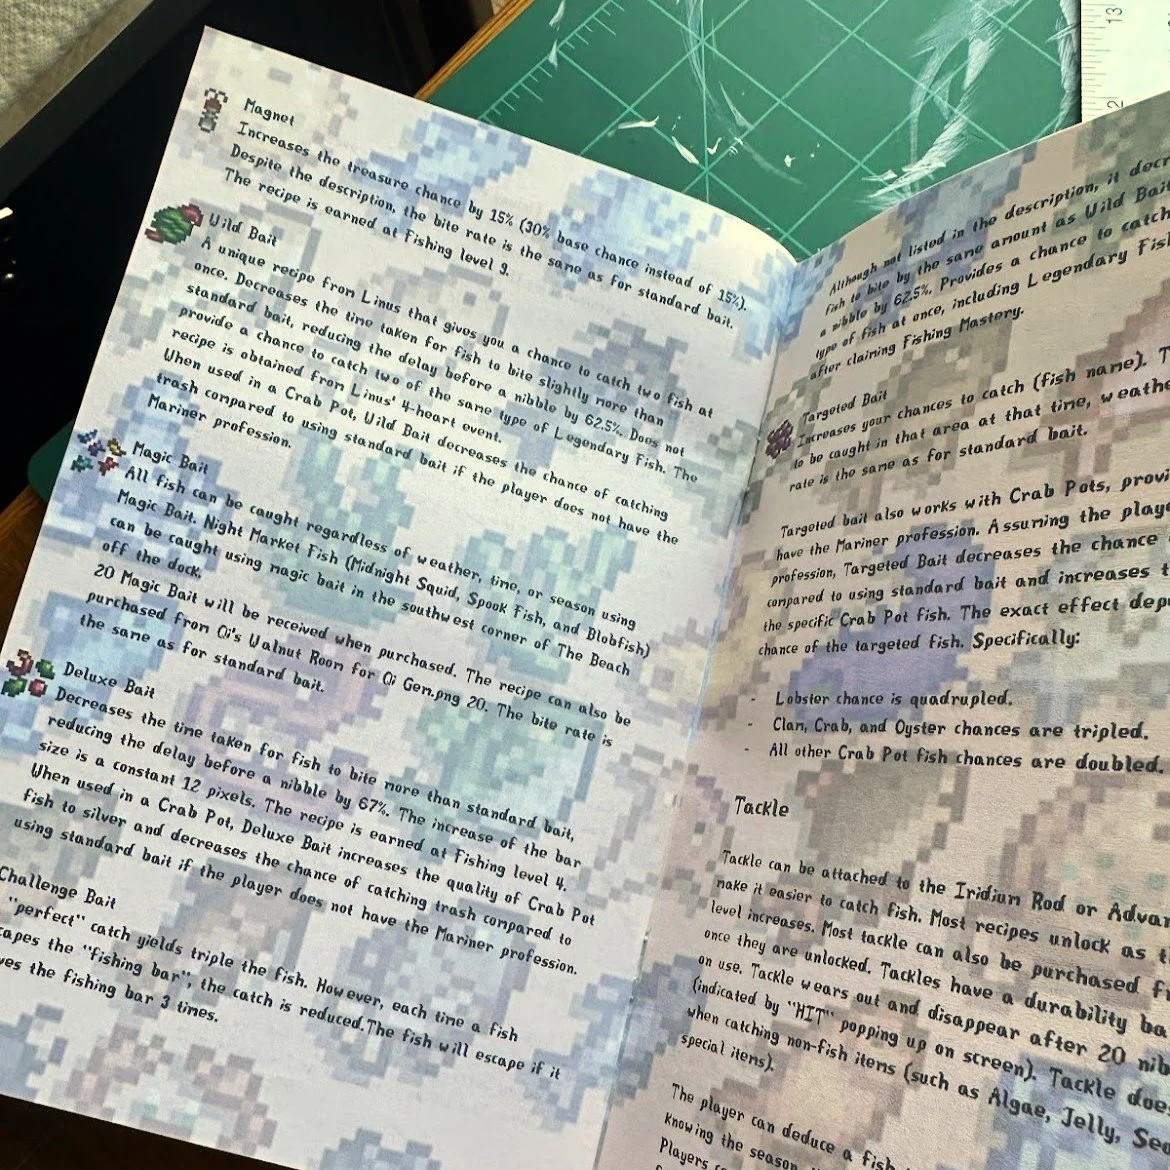 Magnet
Increases the treasure chance by 15% (30% base chance instead of 15%).
Despite the description, the bite rate is the same as for standard bait.
The recipe is earned at Fishing level 9.
Wild Bait
A unique recipe from Linus that gives you a chance to catch two fish at
once. Decreases the time taken for fish to bite slightly more than
standard bait, reducing the delay before a nibble by 62.5%. Does not
provide a chance to catch two of the same type of Legendary Fish. The
recipe is obtained from Linus' 4-heart event.
When used in a Crab Pot, Wild Bait decreases the chance of catching
trash compared to using standard bait if the player does not have the
Mariner profession.
Magic Bait
All fish can be caught regardless of weather, time, or season using
Magic Bait. Night Market Fish (Midnight Squid, Spook Fish, and Blobfish)
can be caught using magic bait in the southwest corner of The Beach
off the dock.
20 Magic Bait will be received when purchased. The recipe can also be
purchased from Qi's Walnut Room for Qi Gem.png 20. The bite rate is
the same as for standard bait.
Deluxe Bait
Decreases the time taken for fish to bite more than standard bait,
reducing the delay before a nibble by 67%. The increase of the bar
size is a constant 12 pixels. The recipe is earned at Fishing level 4.
When used in a Crab Pot, Deluxe Bait increases the quality of Crab Pot
fish to silver and decreases the chance of catching trash compared to
using standard bait if the player does not have the Mariner profession.
Challenge Bait
"perfect" catch yields triple the fish. However, each time a fish
capes the "fishing bar", the catch is reduced.The fish will escape if it
ves the fishing bar 3 times.
Although not listed in the description, it decr
fish to bite by the same amount as Wild Bait
a nibble by 62.5%. Provides a chance to catch
type of fish at once, including Legendary Fish
after claiming Fishing Mastery.
Targeted Bait
Increases your chances to catch (fish name). T
to be caught in that area at that time, weathe
rate is the same as for standard bait.
Targeted bait also works with Crab Pots, provi
have the Mariner profession. Assuming the playe
profession, Targeted Bait decreases the chance
compared to using standard bait and increases t
the specific Crab Pot fish. The exact effect dep
chance of the targeted fish. Specifically:
- Lobster chance is quadrupled.
- Clam, Crab, and Oyster chances are tripled.
- All other Crab Pot fish chances are doubled.
Tackle
Tackle can be attached to the Iridium Rod or Advan
make it easier to catch fish. Most recipes unlock as t
level increases. Most tackle can also be purchased fr
once they are unlocked. Tackles have a durability ba
on use. Tackle wears out and disappear after 20 nib
(indicated by "HIT" popping up on screen). Tackle doe
when catching non-fish items (such as Algae, Jelly, Sea
special items).
The player can deduce a fish
knowing the season
Players
13